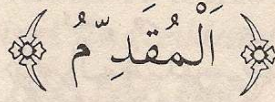 اَلْمُقَدِّمُ